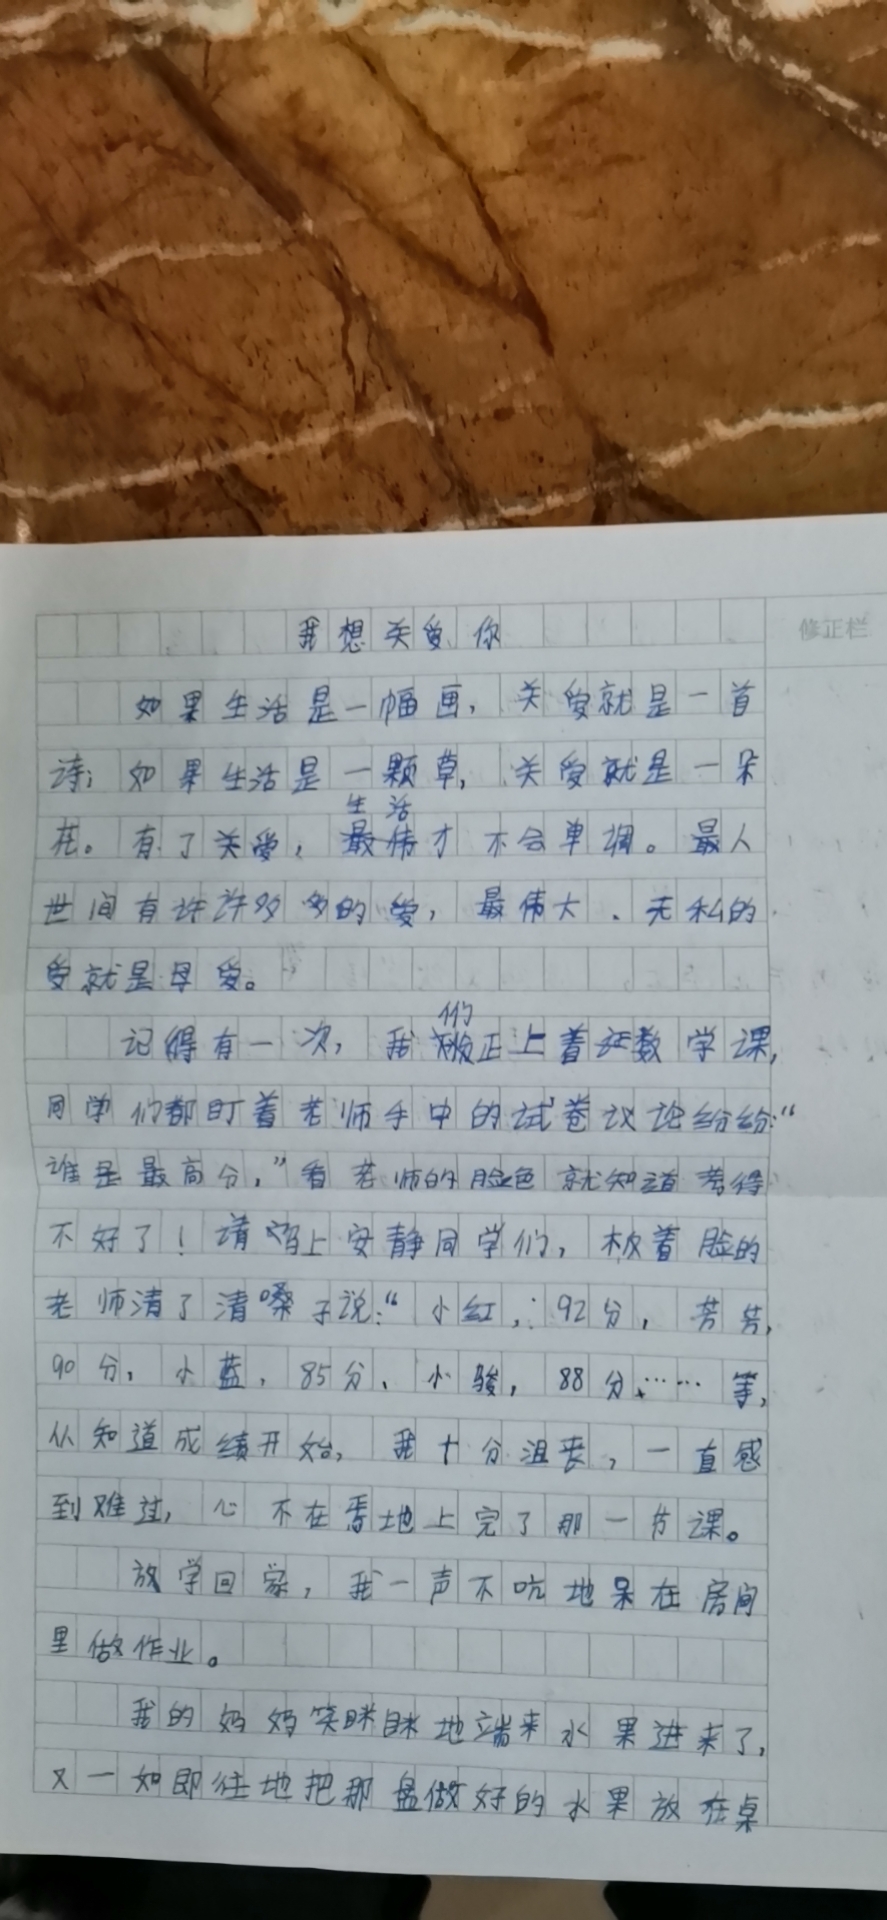 我想关爱你
修正栏
如果生活是一幅画，关爱就是一首
诗；如果生活是一颗草，关爱就是一朵
生活
花。有了关爱，最伟才不会单调。最人
世间有许许多多的爱，最伟大、无私的
爱就是母爱。
们
记得有一次，我正上着数学课，
同学们都盯着老师手中的试卷议论纷纷："
谁是最高分，"看老师的脸色就知道考得
不好了！请马上安静同学们，板着脸的
老师清了清嗓子说："小红，：92分，芳芳，
90分，小蓝，85分，小骏，88分……等，
从知道成绩开始，我十分沮丧，一直感
到难过，心不在焉地上完了那一节课。
放学回家，我一声不吭地呆在房间
里做作业。
我的妈妈笑眯眯地端来水果进来了，
又一如即往地把那盘做好的水果放在桌